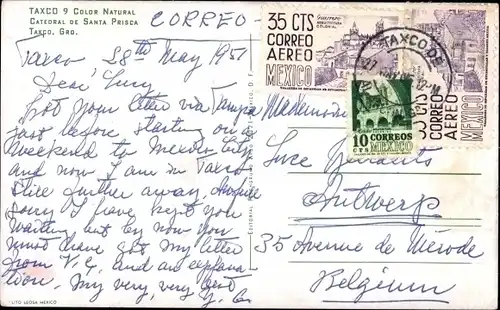 TAXCO 9 COLOR NATURAL
CATEDRAL DE SANTA PRISCA
TAXCO, GRO.
CORREO
Taxco 28th May 1951
Dear Lucy
Got your letter via Tampa
just before starting on a
weekend to Mexico City
and now I am in Taxco
still further away, Awfully
sorry I have kept you
waiting but by now you
must have got my letter
from V.C. and an explana-
tion. My very, very best
LITO LEOSA MEXICO
35 CTS
CORREO
AEREO
MEXICO
35 CTS
CORREO
AEREO
MEXICO
TAXCO DE
10 CTS CORREOS
MEXICO
Mademoiselle
Luce
Antwerp
35 Avenue de Mérode
Belgium